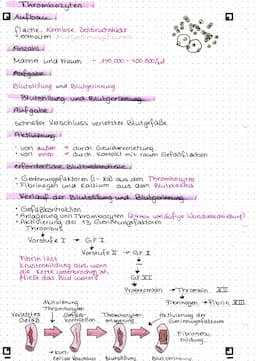 Thrombozyten
Aufbau
flache, Kernlose Zellbruchstücke
enthalten
Anzahl
Männer und Frauen - 150.000 - 400.000/µl
Aufgabe
Blutstillung und Blutgerinnung
Blutstillung und Blutgerinnung
Aufgabe
schneller Verschluss verletzter Blutgefäße
Aktivierung
- von außen → durch Gewebeverletzung
- von innen → durch Kontakt mit rauen Gefäßflächen
erforderliche Blutbestandteile
- Gerinnungsfaktoren (I-XIII) aus den Thrombozyten
- Fibrinogen und Kalzium aus dem Blutplasma
Verlauf der Blutstillung und Blutgerinnung
- Gefäßkontraktion
- Anlagerung von Thrombozyten
- Aktivierung der 13 Gerinnungsfaktoren
Thrombus
Vorstufe I → GF I
Vorstufe II → GF II
Fibrin löst
Krustenbildung aus, wenn
die Kette unterbrochen ist,
fließt das Blut weiter
GF XII
Prothrombin → Thrombin
Fibrinogen → Fibrin XIII
verletztes Gefäß
Aktivierung Thrombozyten
Gefäßkontraktion
Thrombozyten
Aktivierung der Gerinnungsfaktoren
Fibrinnetzbildung
Blutstillung
Blutgerinnung